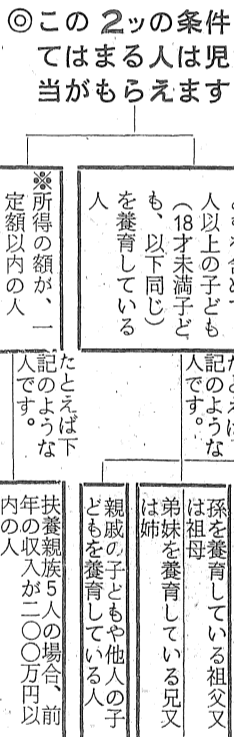 ◎この2ッの条件
てはまる人は児
当がもらえます
人以上の子ども
(18才未満子ど
も、以下同じ)
を養育している
人
※所得の額が、一
定額以内の人
記のような
人です。
たとえば下
記のような
人です。
孫を養育している祖父又
は祖母
弟妹を養育している兄又
は姉
親戚の子どもや他人の子
どもを養育している人
扶養親族5人の場合、前
年の収入が二〇〇万円以
内の人